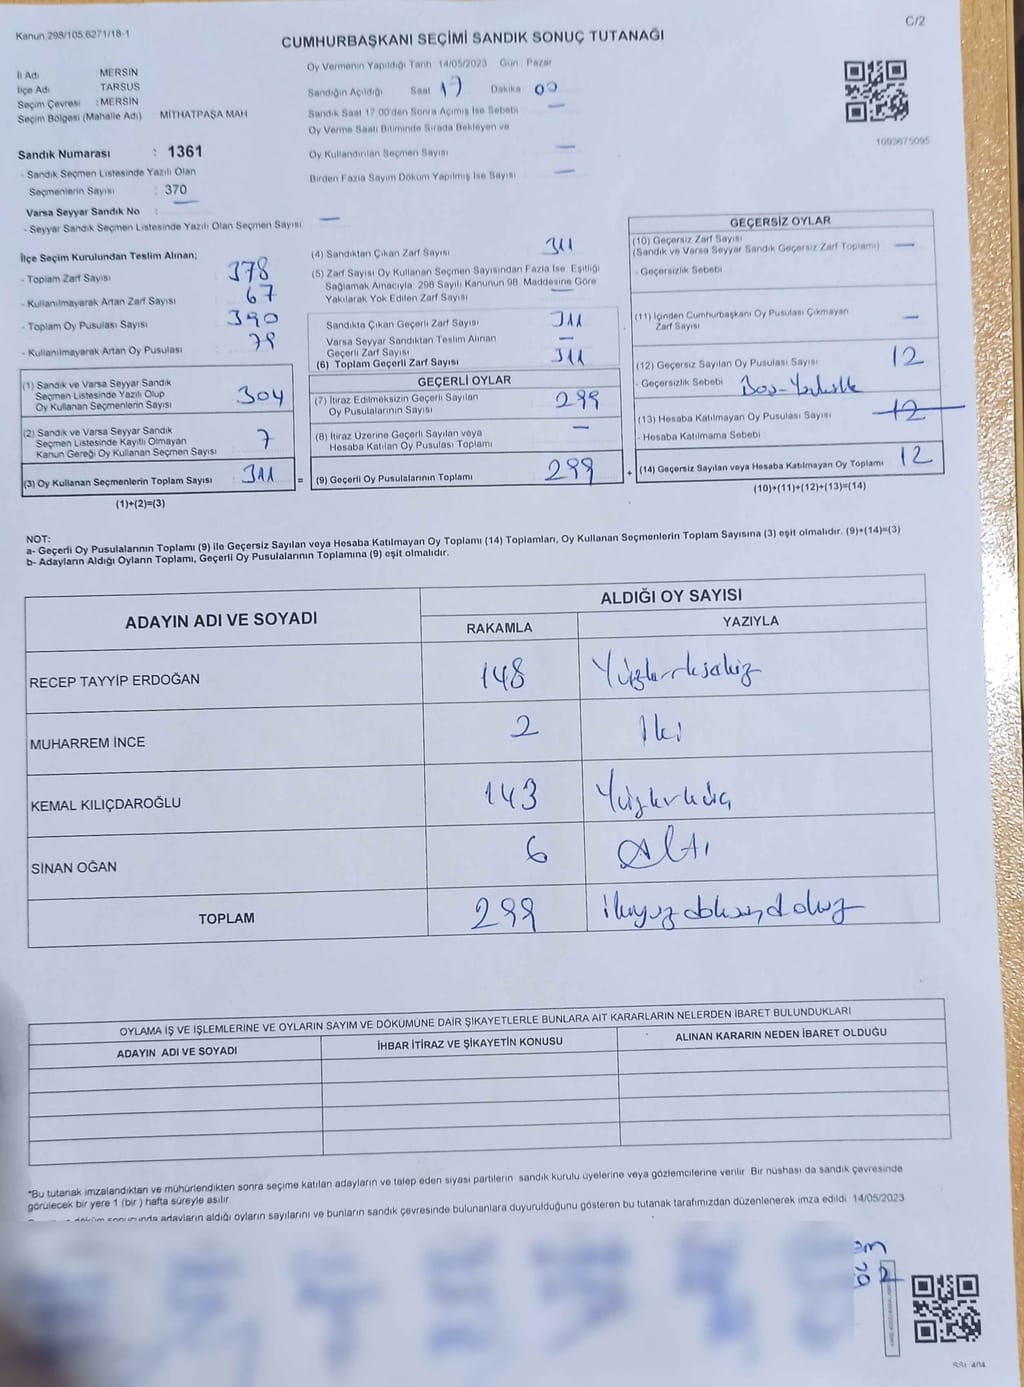 Kanun 298/105 6271/18-1
C/2
CUMHURBAŞKANI SEÇİMİ SANDIK SONUÇ TUTANAĞI
İl Adı MERSİN
İlçe Adı TARSUS
Seçim Çevresi : MERSİN
Seçim Bölgesi (Mahalle Adı) MİTHATPAŞA MAH
Oy Vermenin Yapıldığı Tarih 14/05/2023 Gün Pazar
Sandığın Açıldığı Saat 17 Dakika 00
Sandık Saat 17 00'den Sonra Açımış İse Sebebi —
Oy Verme Saati Bitiminde Sırada Bekleyen ve
Oy Kullandırılan Seçmen Sayısı —
Birden Fazla Sayım Döküm Yapılmış İse Sayısı —
1093675095
Sandık Numarası : 1361
- Sandık Seçmen Listesinde Yazılı Olan
Seçmenlerin Sayısı : 370
Varsa Seyyar Sandık No :
- Seyyar Sandık Seçmen Listesinde Yazılı Olan Seçmen Sayısı —
İlçe Seçim Kurulundan Teslim Alınan;
- Toplam Zarf Sayısı 378
- Kullanılmayarak Artan Zarf Sayısı 67
- Toplam Oy Pusulası Sayısı 390
- Kullanılmayarak Artan Oy Pusulası 79
(1) Sandık ve Varsa Seyyar Sandık
Seçmen Listesinde Yazılı Olup
Oy Kullanan Seçmenlerin Sayısı 304
(2) Sandık ve Varsa Seyyar Sandık
Seçmen Listesinde Kayıtlı Olmayan
Kanun Gereği Oy Kullanan Seçmen Sayısı 7
(3) Oy Kullanan Seçmenlerin Toplam Sayısı 311
(1)+(2)=(3)
(4) Sandıktan Çıkan Zarf Sayısı 311
(5) Zarf Sayısı Oy Kullanan Seçmen Sayısından Fazla İse Eşitliği
Sağlamak Amacıyla 298 Sayılı Kanunun 98 Maddesine Göre
Yakılarak Yok Edilen Zarf Sayısı —
Sandıkta Çıkan Geçerli Zarf Sayısı 311
Varsa Seyyar Sandıktan Teslim Alınan
Geçerli Zarf Sayısı —
(6) Toplam Geçerli Zarf Sayısı 311
GEÇERLİ OYLAR
(7) İtiraz Edilmeksizin Geçerli Sayılan
Oy Pusulalarının Sayısı 299
(8) İtiraz Üzerine Geçerli Sayılan veya
Hesaba Katılan Oy Pusulası Toplamı —
= (9) Geçerli Oy Pusulalarının Toplamı 299
GEÇERSİZ OYLAR
(10) Geçersiz Zarf Sayısı
(Sandık ve Varsa Seyyar Sandık Geçersiz Zarf Toplamı) —
- Geçersizlik Sebebi
(11) İçinden Cumhurbaşkanı Oy Pusulası Çıkmayan
Zarf Sayısı —
(12) Geçersiz Sayılan Oy Pusulası Sayısı 12
- Geçersizlik Sebebi Boş-
(13) Hesaba Katılmayan Oy Pusulası Sayısı 12
- Hesaba Katılmama Sebebi
+ (14) Geçersiz Sayılan veya Hesaba Katılmayan Oy Toplamı 12
(10)+(11)+(12)+(13)=(14)
NOT:
a- Geçerli Oy Pusulalarının Toplamı (9) ile Geçersiz Sayılan veya Hesaba Katılmayan Oy Toplamı (14) Toplamları, Oy Kullanan Seçmenlerin Toplam Sayısına (3) eşit olmalıdır. (9)+(14)=(3)
b- Adayların Aldığı Oyların Toplamı, Geçerli Oy Pusulalarının Toplamına (9) eşit olmalıdır.
ADAYIN ADI VE SOYADI
ALDIĞI OY SAYISI
RAKAMLA YAZIYLA
RECEP TAYYİP ERDOĞAN 148 Yüzkırksekiz
MUHARREM İNCE 2 İki
KEMAL KILIÇDAROĞLU 143 Yüzkırküç
SİNAN OĞAN 6 Altı
TOPLAM 299 ikiyüzdoksandokuz
OYLAMA İŞ VE İŞLEMLERİNE VE OYLARIN SAYIM VE DÖKÜMÜNE DAİR ŞİKAYETLERLE BUNLARA AİT KARARLARIN NELERDEN İBARET BULUNDUKLARI
ADAYIN ADI VE SOYADI İHBAR İTİRAZ VE ŞİKAYETİN KONUSU ALINAN KARARIN NEDEN İBARET OLDUĞU
*Bu tutanak imzalandıktan ve mühürlendikten sonra seçime katılan adayların ve talep eden siyasi partilerin sandık kurulu üyelerine veya gözlemcilerine verilir Bir nüshası da sandık çevresinde
görülecek bir yere 1 (bir) hafta süreyle asılır.
döküm sonucunda adayların aldığı oyların sayılarını ve bunların sandık çevresinde bulunanlara duyurulduğunu gösteren bu tutanak tarafımızdan düzenlenerek imza edildi 14/05/2023